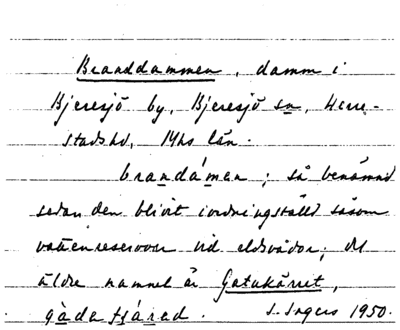 Branddammen, damm i
Bjeresjö by, Bjeresjö sn, Herre-
stads hd, Mhs län.
brandámen; så benämnd
sedan den blivit iordningställd såsom
vattenreservoar vid eldsvådor; det
äldre namnet är Gatukärret,
gàdatjárəd. S. Ingers 1950.